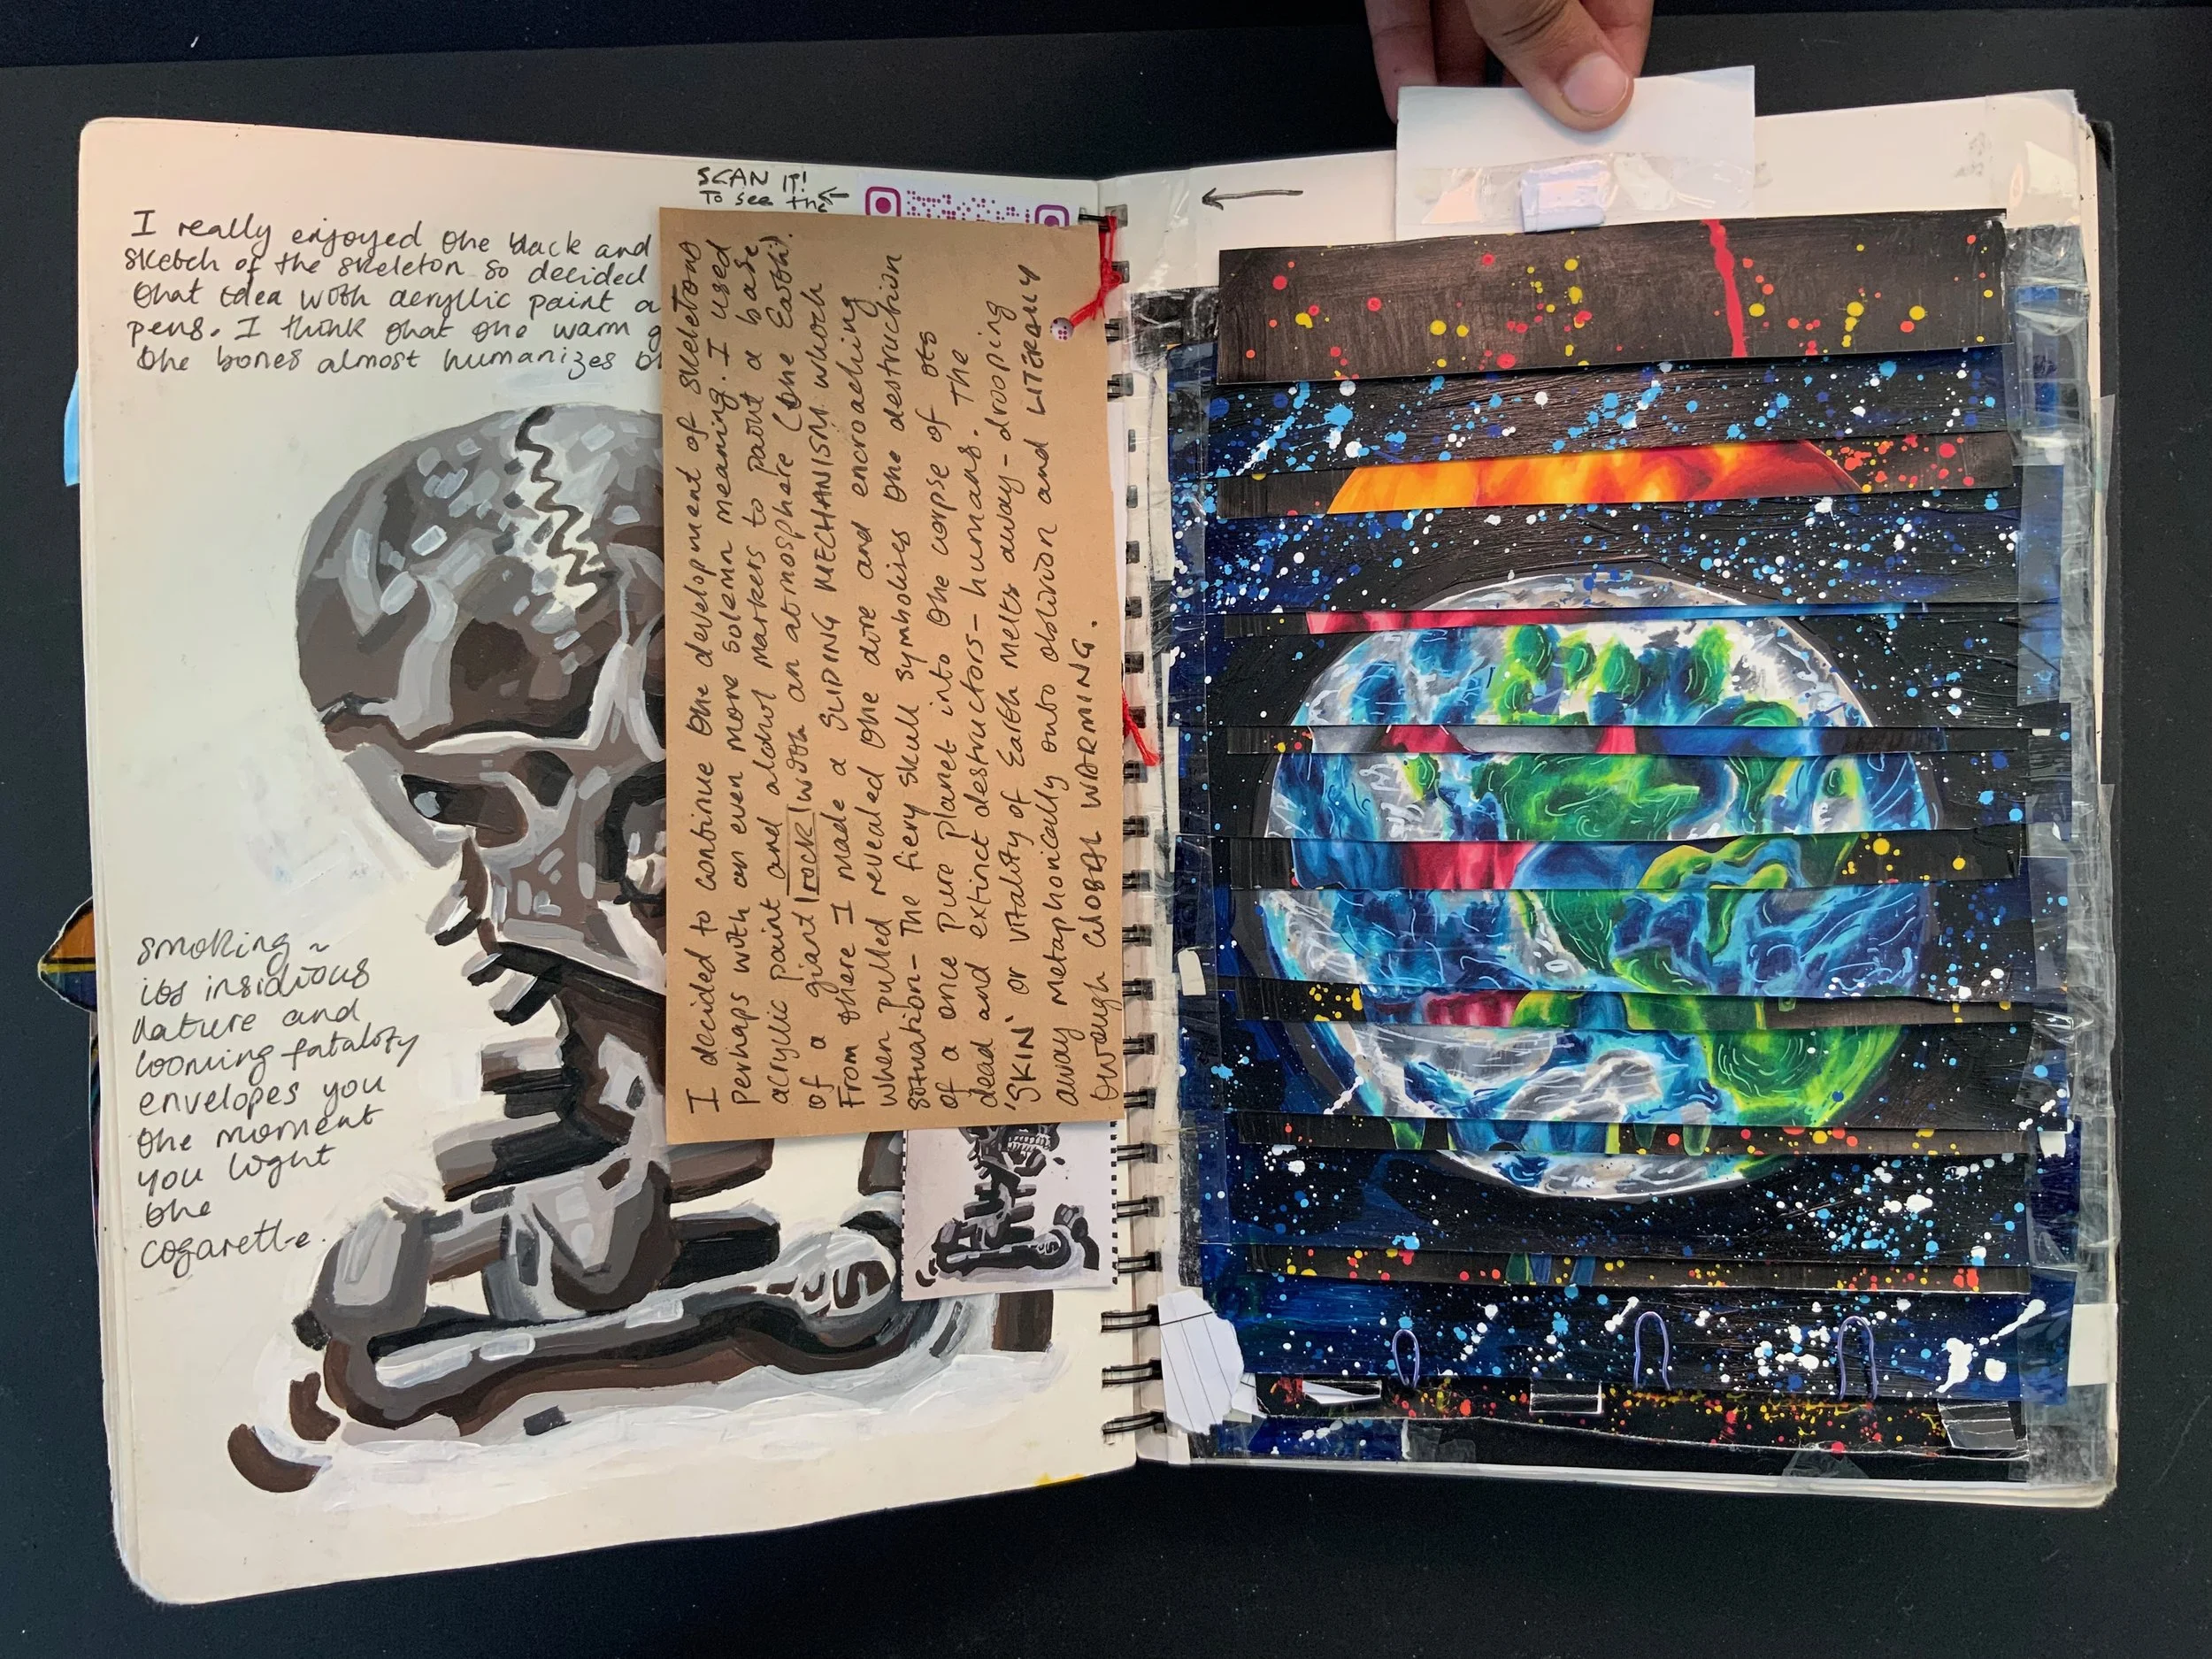 SCAN IT!
To see the
I really enjoyed the black and
sketch of the skeleton so decided
that idea with acryllic paint a
pens. I think that the warm g
the bones almost humanizes
smoking ~
its insidious
nature and
looming fatality
envelopes you
the moment
you light
the
cogarette.
I decided to continue the development of skeletons
perhaps with an even more solemn meaning. I used
acrylic paint and alchol markers to paint a base
of a giant rock with an atmosphere (the Earth).
From there I made a SLIDING MECHANISM which
when pulled revealed the dire and encroaching
situation- The fiery skull symbolises the destruction
of a once pure planet into the corpse of its
dead and extinct destructors- humans. The
'SKIN' or vitality of Earth melts away- drooping
away metaphorically into oblivion and LITERALLY
through GLOBAL WARMING.